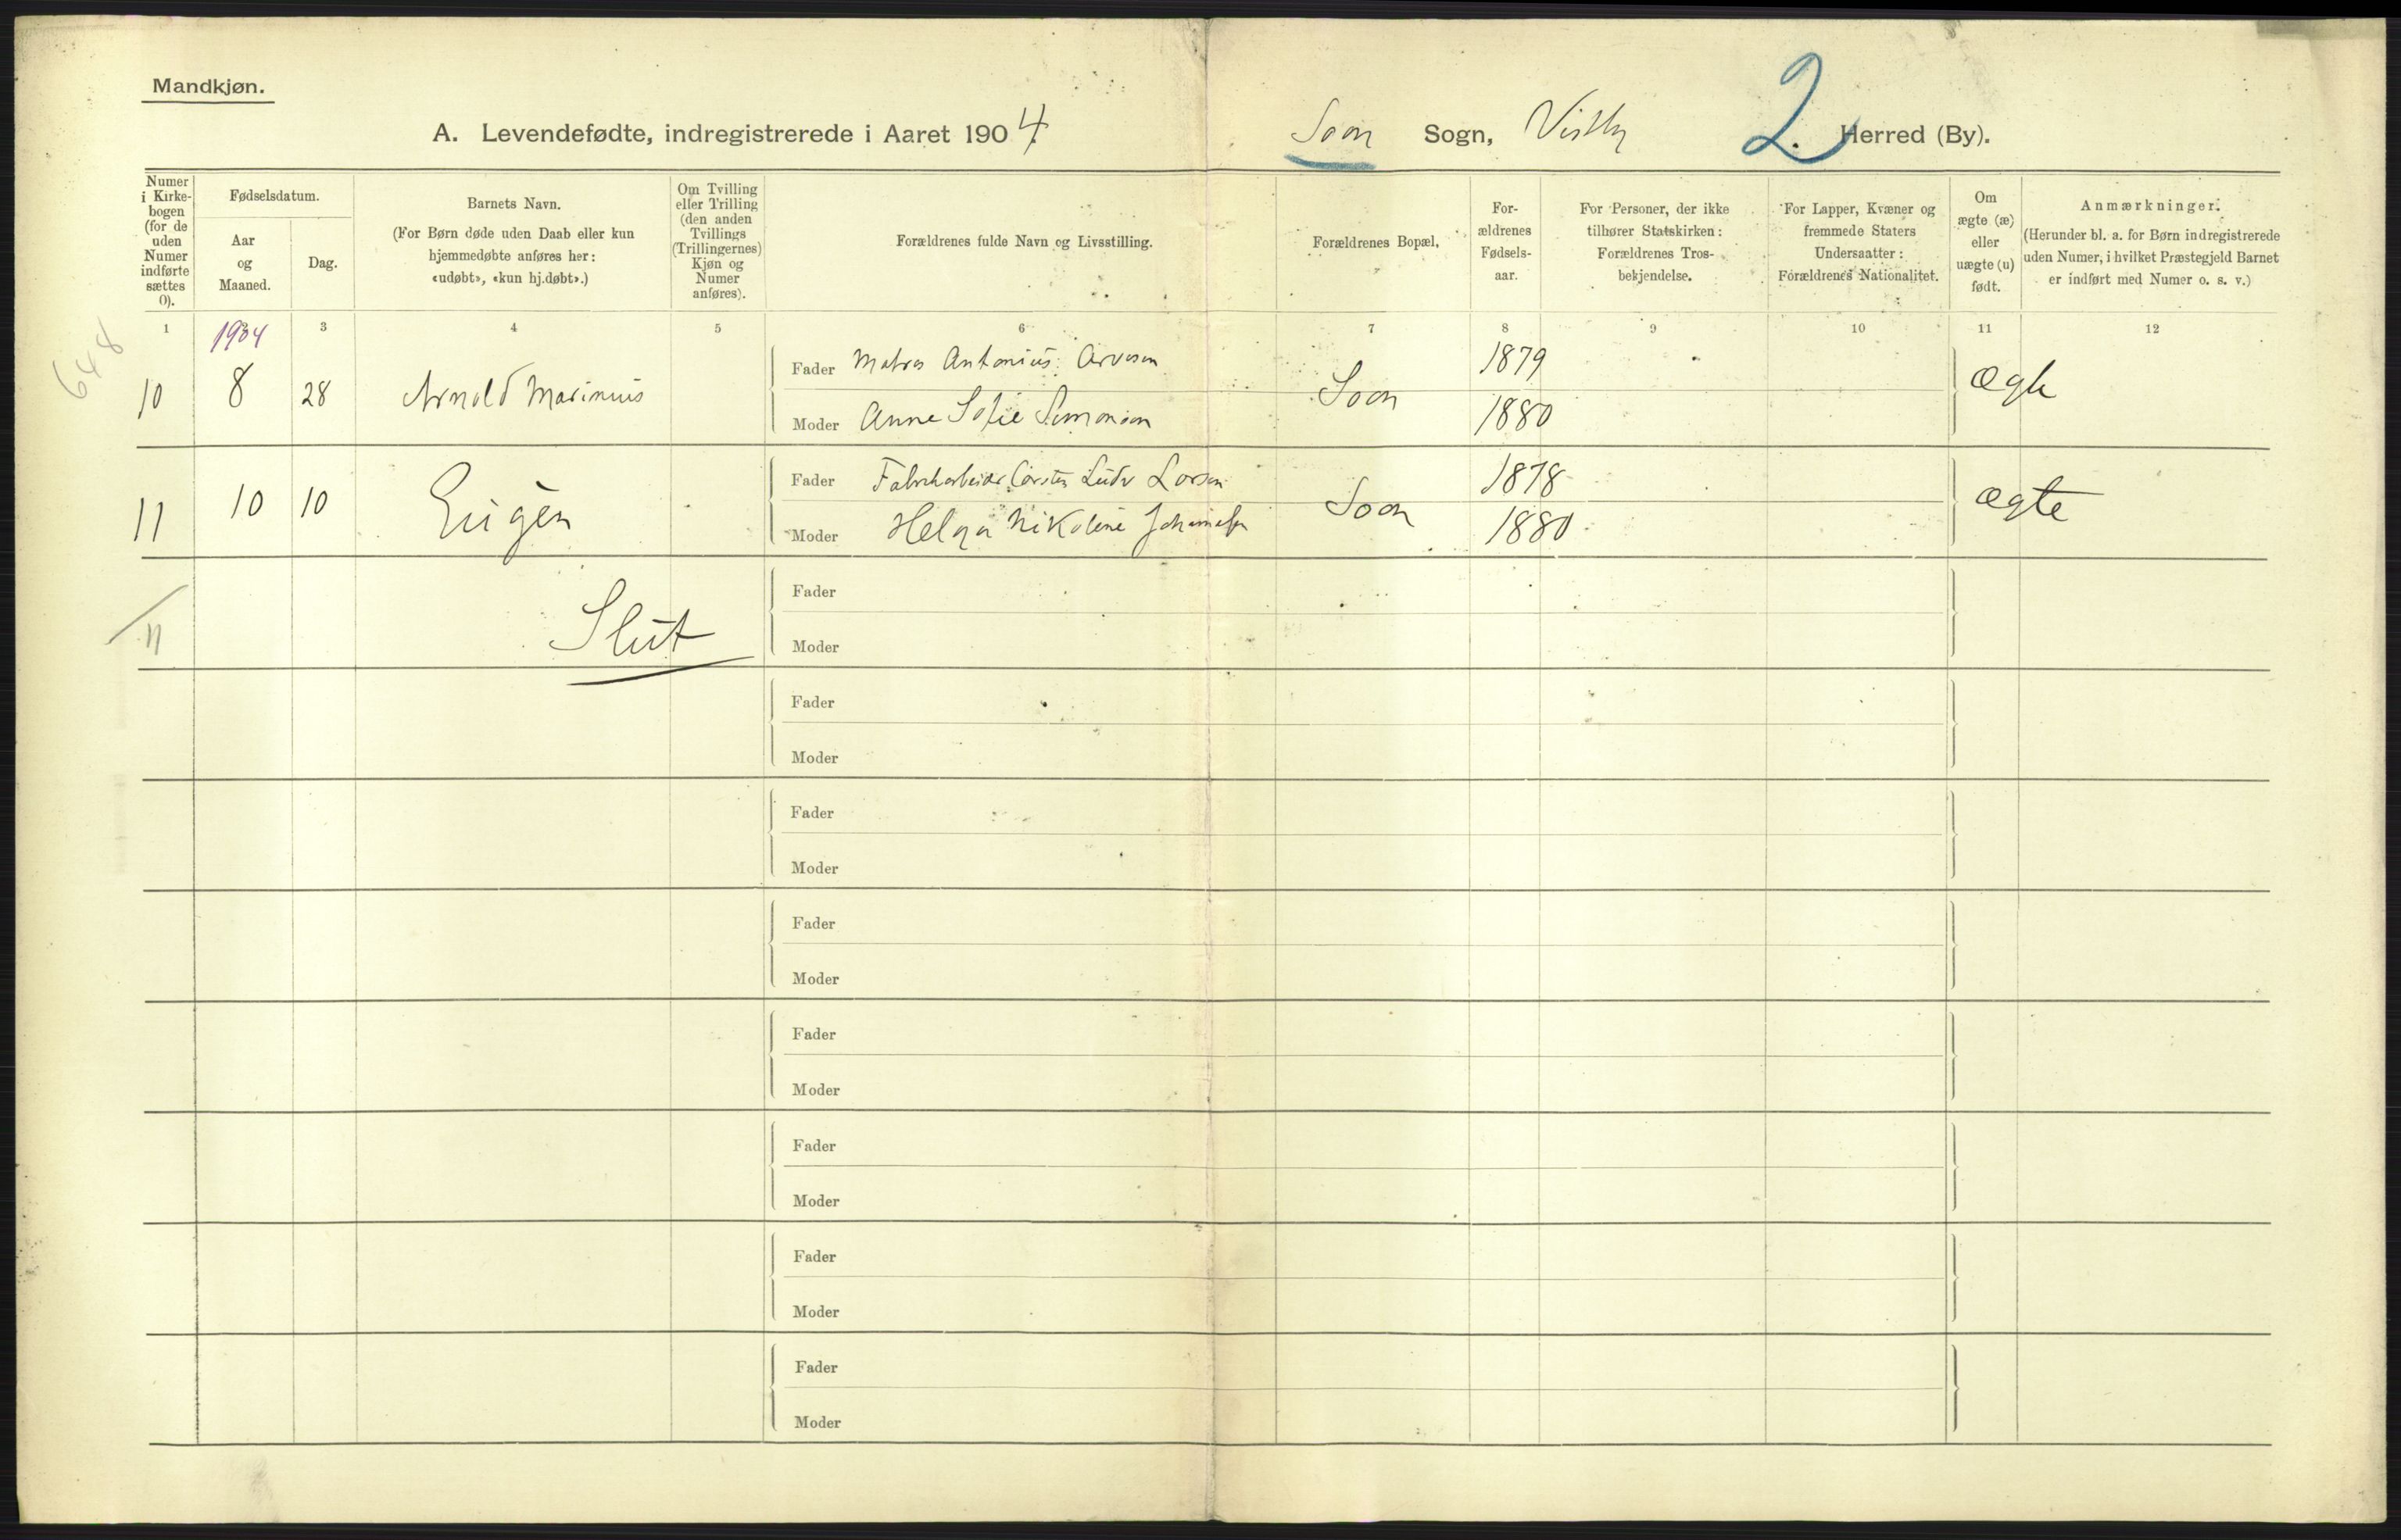 Mandkjøn.
A. Levendefødte, indregistrerede i Aaret 1904.
Soon Sogn, 2. Herred (By).
Numer i Kirkebogen (for de uden Numer indførte sættes 0).
Fødselsdatum.
Aar og Maaned.
Dag.
Barnets Navn.
(For Børn døde uden Daab eller kun hjemmedøbte anføres her: «udøbt», «kun hj.døbt».)
Om Tvilling eller Trilling (den anden Tvillings (Trillingernes) Kjøn og Numer anføres).
Forældrenes fulde Navn og Livsstilling.
Forældrenes Bopæl.
For-ældrenes Fødsels-aar.
For Personer, der ikke tilhører Statskirken: Forældrenes Tros-bekjendelse.
For Lapper, Kvæner og fremmede Staters Undersaatter: Forældrenes Nationalitet.
Om ægte (æ) eller uægte (u) født.
Anmærkninger.
(Herunder bl. a. for Børn indregistrerede uden Numer, i hvilket Præstegjeld Barnet er indført med Numer o. s. v.)
1 1904 3 4 5 6 7 8 9 10 11 12
648
10 8 28 Arnold Marinius Fader Matros Antonius Arvesen Soon 1879 Ægte
Moder Anne Sofie Simonsen 1880
11 10 10 Eugèn Fader Fabrikarbeider Carsten Ludv Larsen Soon 1878 Ægte
Moder Helga Nikoline Johannesen 1880
11
Slut
Fader
Moder
Fader
Moder
Fader
Moder
Fader
Moder
Fader
Moder
Fader
Moder
Fader
Moder
Fader
Moder